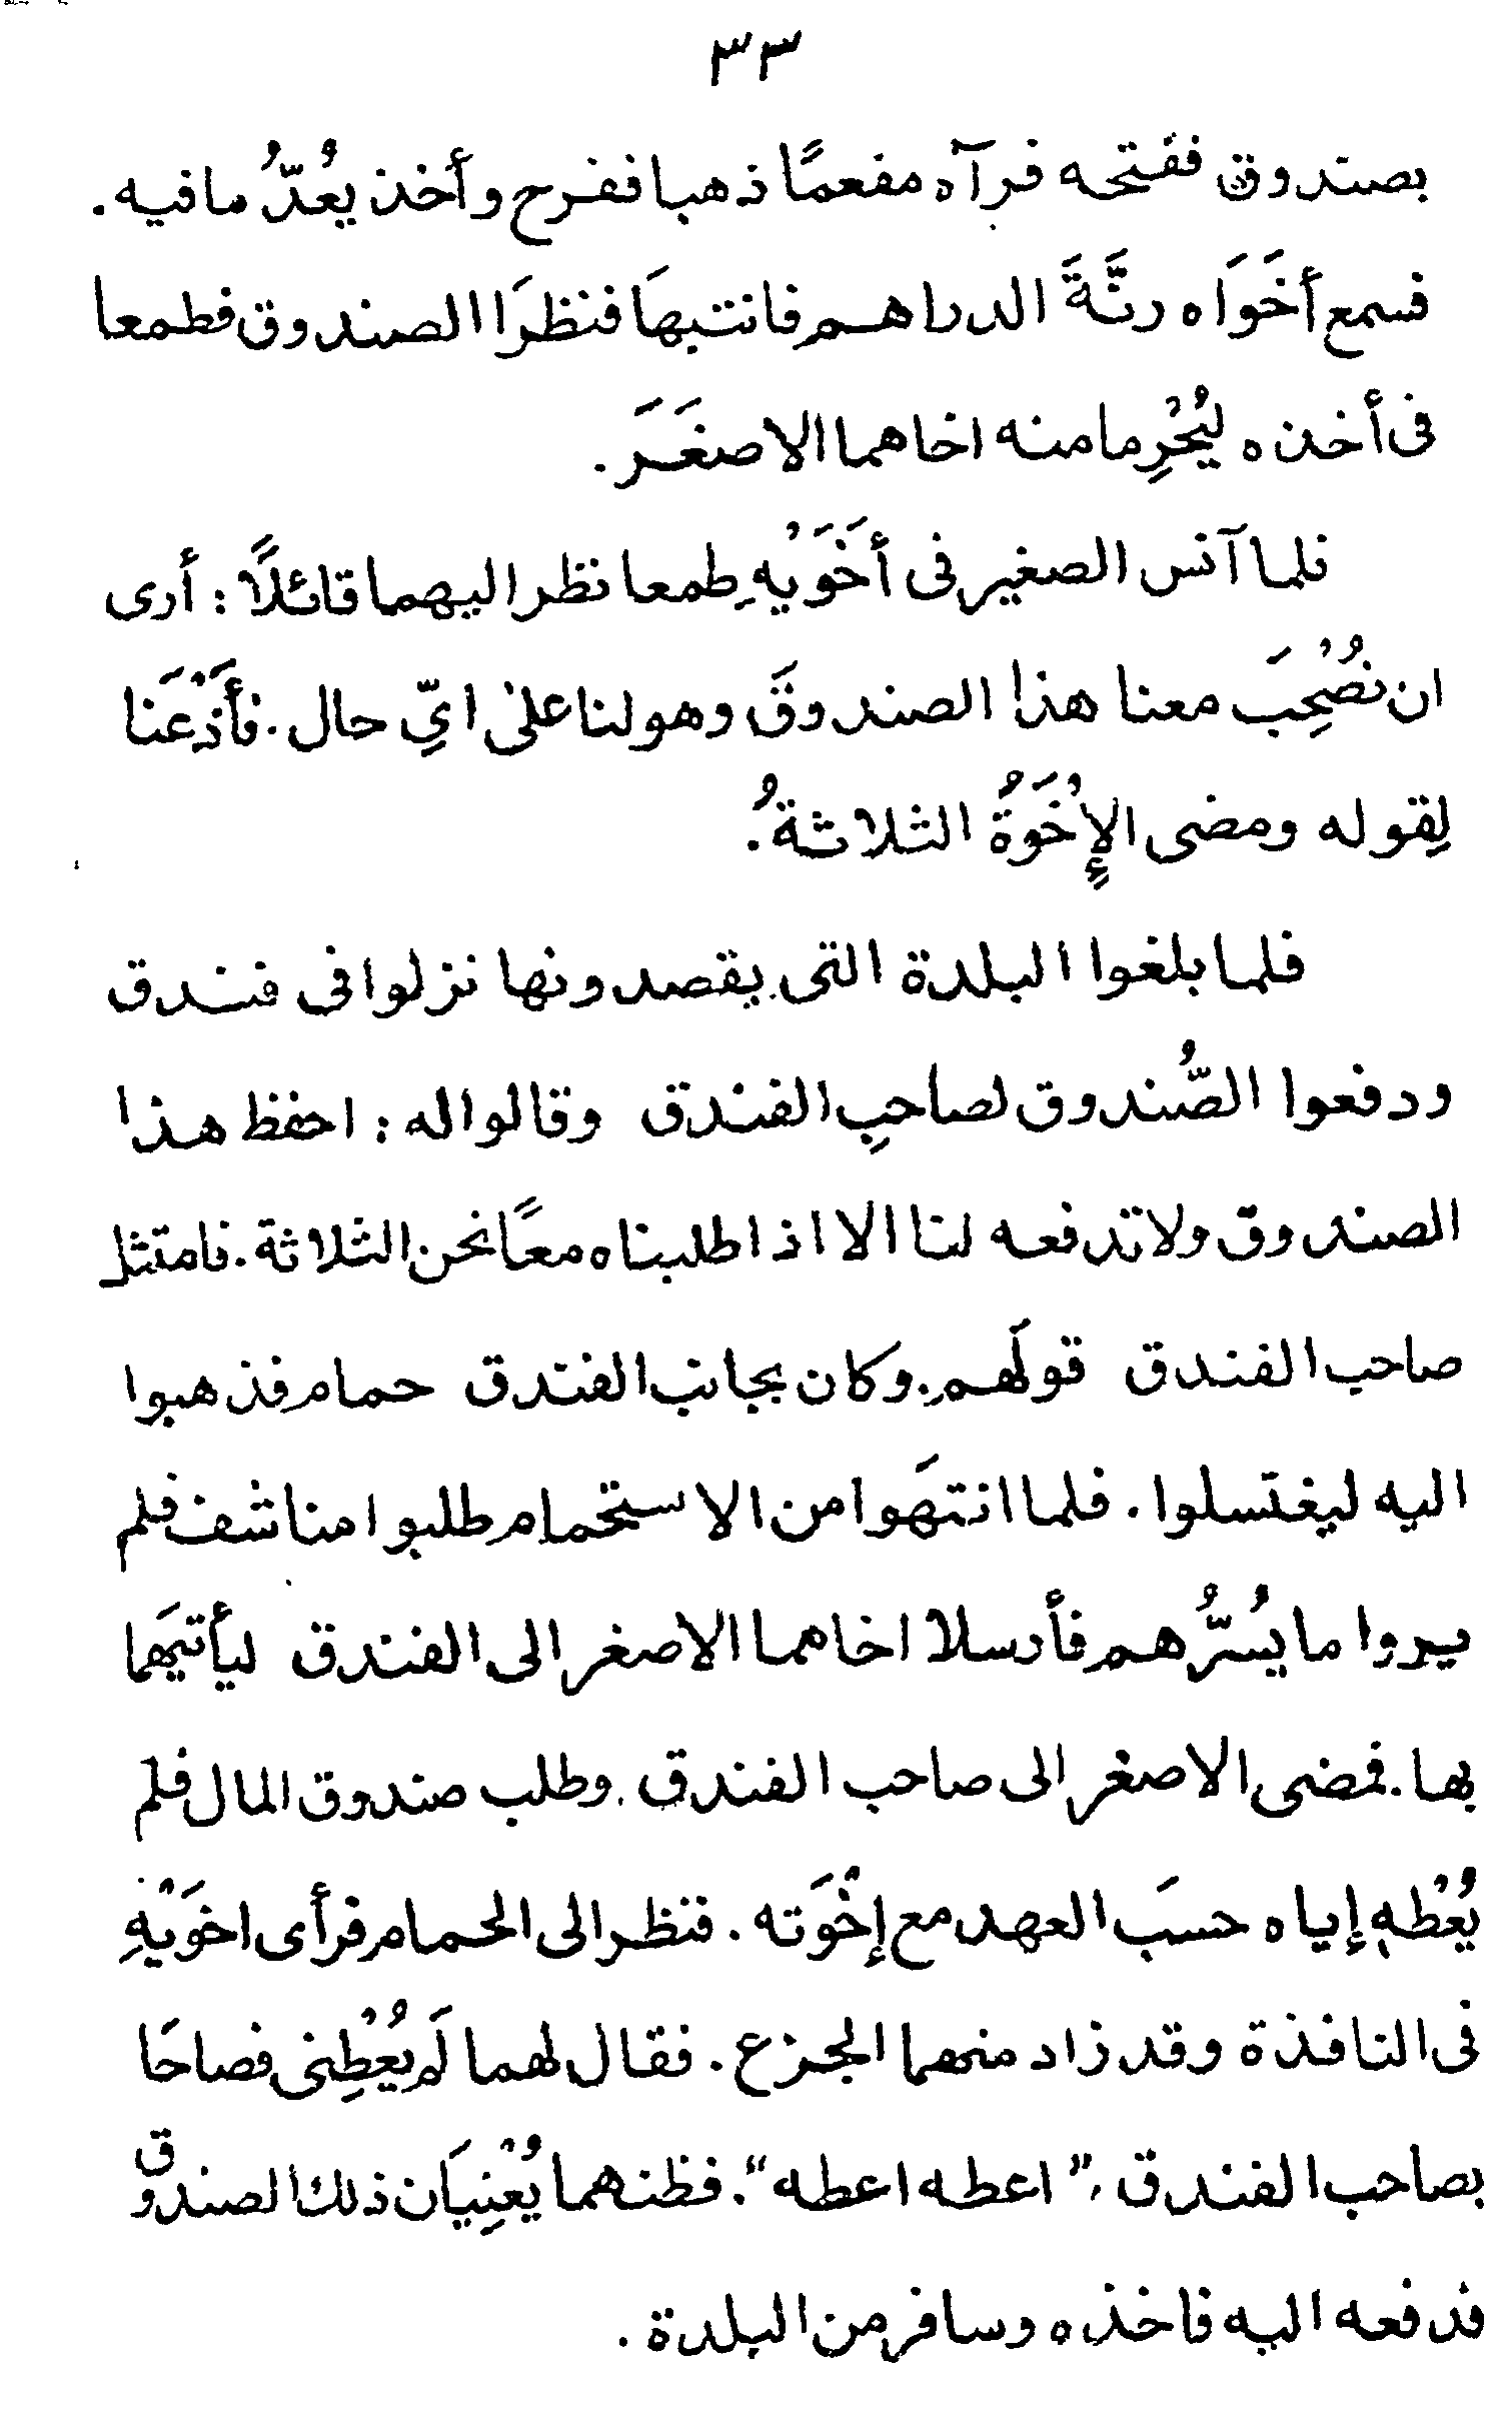 ٣٣
بصندوق ففتحه فرآه مفعمًا ذهبا ففرح وأخذ يعُدّ ُ ما فيه .
فسمع أخَوَاه رنَّةَ الدراهم فانتبهَا فنظرَا الصندوق فطمعا
فى أخذه ليُحْرِما منه اخاهما الاصغَرَ .
فلما آنس الصغير فى أخَوَيْهِ طمعا نظر اليهما قائلًا : أرى
ان نُصْحِبَ معنا هذا الصندوقَ وهو لنا على ايِّ حال . فأذْعَنَا
لِقوله ومضى الإِخْوَةُ الثلاثةُ .
فلما بلغوا البلدة التى يقصدونها نزلوا فى فندق
ودفعوا الصُّندوق لصاحبِ الفندق وقالوا له : احفظ هذا
الصندوق ولا تدفعه لنا الا اذا طلبناه معًا نحن الثلاثة . فامتثل
صاحب الفندق قولَهم . وكان بجانب الفندق حمام فذهبوا
اليه ليغتسلوا . فلما انتهَوا من الاستحمام طلبوا مناشف فلم
يروا ما يُسرُّهم فأرسلا اخاهما الاصغر الى الفندق ليأتيَهما
بها . فمضى الاصغر الى صاحب الفندق . وطلب صندوق المال فلم
يُعْطهِ إياه حسَب العهد مع إخْوَته . فنظر الى الحمام فرأى اخوَيْهِ
فى النافذة وقد زاد منهما الجزع . فقال لهما لَم يُعْطِنى فصاحَا
بصاحب الفندق ، " اعطه اعطه " . فظنهما يُعْنِيَان ذلك الصندوق
فدفعه اليه فاخذه وسافر من البلدة .